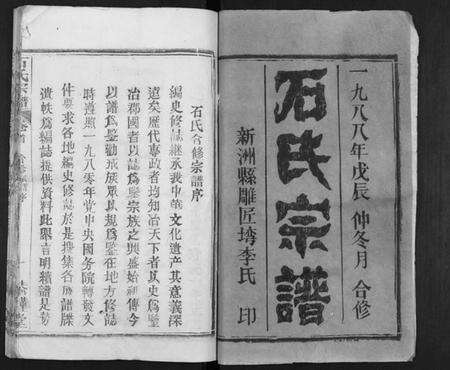 一九八八年戊辰 仲冬月 合修
石氏宗譜
新洲縣雕匠塆李氏 印
石氏合修宗譜序
編史修誌继承我中華文化遗产其意義深
遠矣歷代專政者均知治天下者以史爲鑒
治郡國者以誌爲鑒宗族之興盛始祖傳今
以譜爲鑒勸戒族眾以規爲鑒在地方修誌
時遵照一九八零年党中央國务院轉發文
件要求各地編史修誌於是搜集各届譜牒
遺帙爲編誌提供資料此舉言明續譜是势
石氏宗譜